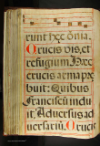 runt hęc oīnia.
Crucis ois, et
refugium Hæc
crucis arma præ
buit: Quibus
Franciscū indu
it, Aduersus ad
uersariū. Crucis